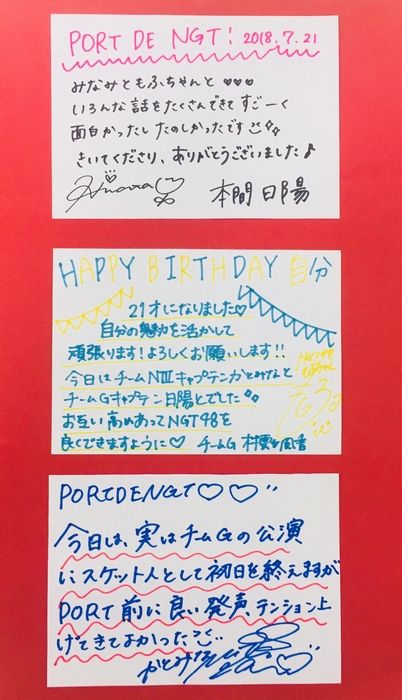 PORT DE NGT! 2018.7.21
みなみともふちゃんと ♡♡♡
いろんな話をたくさんできて すごーく
面白かったし たのしかったです
きいてくださり、ありがとうございました♪
Hinata 本間 日陽
HAPPY BIRTHDAY 自分
21才になりました♡
自分の魅力を活かして
頑張ります!よろしくお願いします!!
今日はチームNIIIキャプテンかとみなと
チームGキャプテン日陽とでした
お互い高めあってNGT48を
良くできますように♡ チームG 村雲颯香
NGT48
PORTDENGT♡♡
今日は、実はチームGの公演
にスケット人として初日を終えますが
PORT前に良い発声、テンション上
げてきてよかった
かとみな